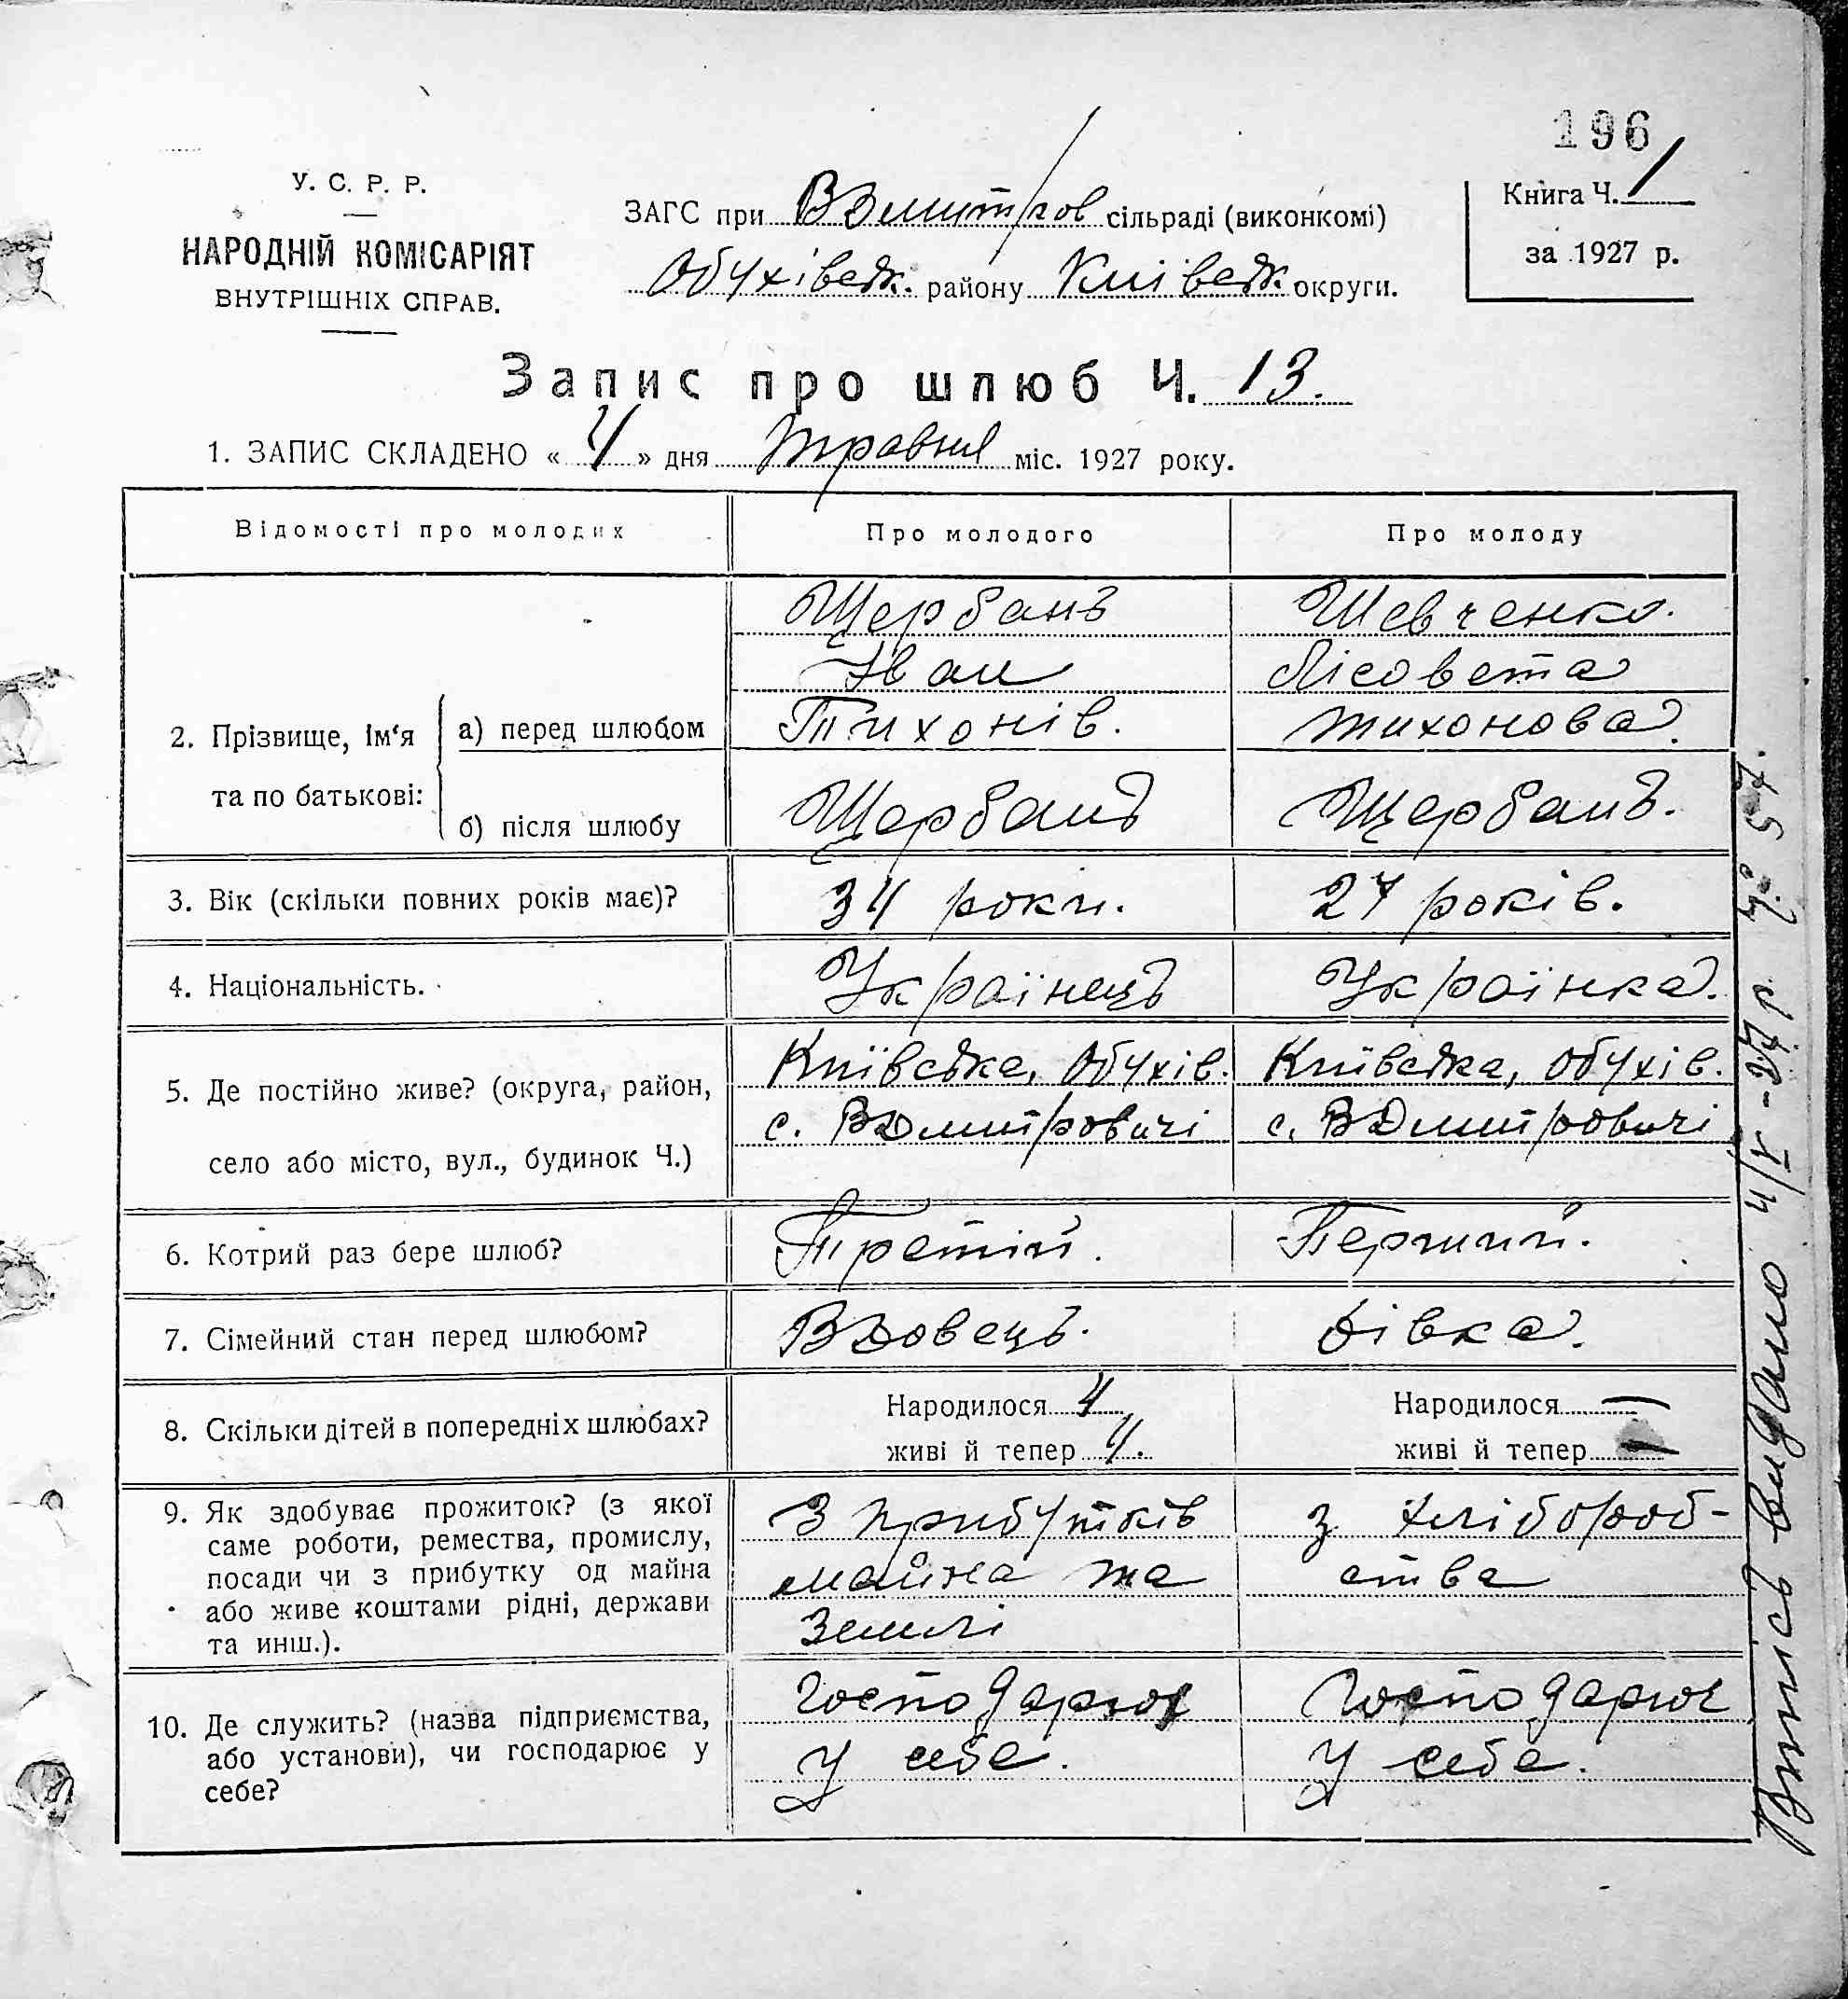 196
У. С. Р. Р.
НАРОДНІЙ КОМІСАРІЯТ
ВНУТРІШНІХ СПРАВ.
ЗАГС при ВДмитров сільраді (виконкомі)
Обухівськ. району Київськ. округи.
Книга Ч. 1
за 1927 р.
Запис про шлюб Ч. 13.
1. ЗАПИС СКЛАДЕНО « 4 » дня травня міс. 1927 року.
Відомості про молодих Про молодого Про молоду
2. Прізвище, ім‘я та по батькові:
а) перед шлюбом
Щербань Шевченко.
Іван Лісовета
Тихонів. Тихонова.
б) після шлюбу Щербань Щербань.
3. Вік (скільки повних років має)? 34 роки. 27 років.
4. Національність. Українець Українка.
5. Де постійно живе? (округа, район, Київська, Обухів. Київська, Обухів.
село або місто, вул., будинок Ч.) с. ВДмитровичі с. ВДмитровичі
6. Котрий раз бере шлюб? Третій. Перший.
7. Сімейний стан перед шлюбом? Вдовець. дівка.
8. Скільки дітей в попередніх шлюбах? Народилося 4 Народилося —
живі й тепер 4. живі й тепер —
9. Як здобуває прожиток? (з якої
саме роботи, ремества, промислу,
посади чи з прибутку од майна
або живе коштами рідні, держави
та инш.).
З прибутків
майна та
землі
з хлібороб-
ства
10. Де служить? (назва підприємства,
або установи), чи господарює у
себе?
господарює
у себе.
Господарює
у себе.
Виписъ видано 4/V-27 р. Ч. 57.